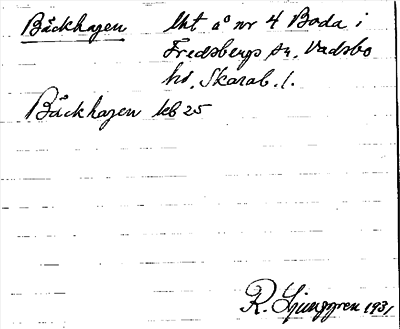 Bäckhagen lht å nr 4 Boda i
Fredsbergs sn, Vadsbo
hd, Skarab. l.
Bäckhagen kb 25
R. Ljunggren 1931